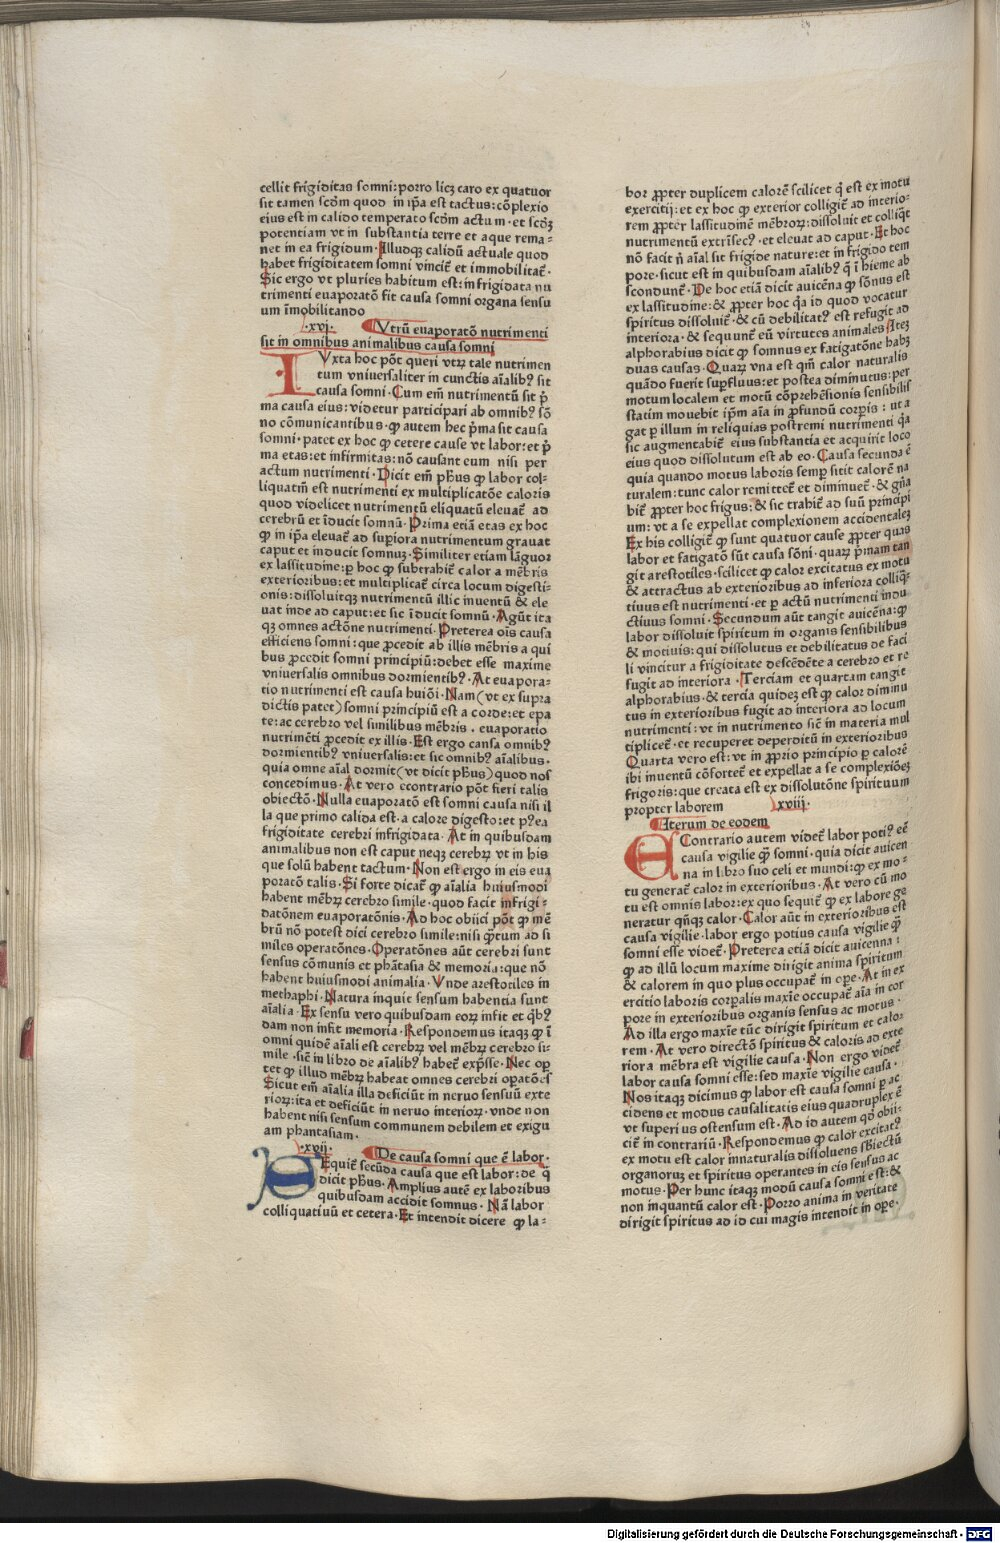 cellit frigiditas somni: porro licꝫ caro ex quatuor
sit tamen scd̄m quod in ip̄a est tactus: cōplexio
eius est in calido temperato scd̄m actum · et scd̄ꝫ
potentiam vt in substantia terre et aque rema-
net in ea frigidum · Illudqꝫ calidū actuale quod
habet frigiditatem somni vincit̄ et immobilitat̄ ·
Sic ergo vt pluries habitum est: in frigidata nu
trimenti euaporatō fit causa somni organa sensu
um īmobilitando
·xvj· Vtrū euaporatō nutrimenti
sit in omnibus animalibus causa somni
IVxta hoc pōt queri vtꝝ tale nutrimen
tum vniuersaliter in cunctis aīalibꝰ sit
causa somni · Cum em̄ nutrimentū sit p̄
ma causa eius: videtur participari ab omnibꝰ sō
no cōmunicantibus · ꝙ autem hec p̄ma sit causa
somni · patet ex hoc ꝙ cetere cause vt labor: et p̄
ma etas: et infirmitas: nō causant eum nisi per
actum nutrimenti · Dicit em̄ ph̄us ꝙ labor col-
liquatiū est nutrimenti ex multiplicatōe caloris
quod videlicet nutrimentū eliquatū eleuat̄ ad
cerebrū et īducit somnū · Prima etiā etas ex hoc
ꝙ in ip̄a eleuat̄ ad suꝑiora nutrimentum grauat
caput et inducit somnuꝫ · Similiter etiam lāguor
ex lassitudine: ꝑ hoc ꝙ subtrahit̄ calor a mēbris
exterioribus: et multiplicat̄ circa locum digesti-
onis: dissoluitqꝫ nutrimentū illic inuentū & ele
uat inde ad caput: et sic īducit somnū · Agūt ita
qꝫ omnes actōne nutrimenti · Preterea oīs causa
efficiens somni: que ꝓcedit ab illis mēbris a qui
bus ꝓcedit somni principiū: debet esse maxime
vniuersalis omnibus dormientibꝰ · At euapora-
tio nutrimenti est causa huiōi · Nam (vt ex supra
dictis patet) somni principiū est a corde: et epa
te: ac cerebro vel similibus mēbris . euaporatio
nutrimēti ꝓcedit ex illis · Est ergo causa omnibꝰ
dormientibꝰ vniuersalis: et sic omnibꝰ aīalibus ·
quia omne aīal dormit (vt dicit ph̄us) quod nos
concedimus · At vero econtrario pōt fieri talis
obiectō · Nulla euaporatō est somni causa nisi il
la que primo calida est · a calore digesto: et pꝰea
frigiditate cerebri infrigidata · At in quibusdam
animalibus non est caput neqꝫ cerebꝝ vt in his
que solū habent tactum · Non est ergo in eis eua
poratō talis · Si forte dicat̄ ꝙ aīalia huiusmodi
habent mēbꝝ cerebro simile · quod facit infrigi-
datōnem euaporatōnis · Ad hoc obiici pōt ꝙ mē
brū nō potest dici cerebro simile: nisi q̄tum ad si
miles operatōnes · Operatōnes aūt cerebri sunt
sensus cōmunis et phātasia & memoria: que nō
habent huiusmodi animalia · Vnde arestotiles in
methaphi · Natura inquit sensum habentia sunt
aīalia · Ex sensu vero quibusdam eoꝝ infit et q̄bꝰ
dam non infit memoria · Respondemus itaqꝫ ꝙ ī
omni quidē aīali est cerebꝝ vel mēbꝝ cerebro si-
mile · sic̄ in libro de aīalibꝰ habet̄ exp̄sse · Nec opꝫ
tet ꝙ illud mēbꝝ habeat omnes cerebri oꝑatōes
Sicut em̄ aīalia illa deficiūt in neruo sensuū exte
rioꝝ: ita et deficiūt in neruo interioꝝ · vnde non
habent nisi sensum communem debilem et exigu
am phantasiam ·
·xvij· De causa somni que ē labor ·
SEquit̄ secūda causa que est labor: de q̄
dicit ph̄us · Amplius autē ex laboribus
quibusdam accidit somnus · Nā labor
colliquatiuū et cetera · Et intendit dicere ꝙ la-
bor ꝓpter duplicem calorē scilicet q̄ est ex motu
exercitij: et ex hoc ꝙ exterior colligit̄ ad interio-
rem ꝓpter lassitudinē mēbroꝝ: dissoluit et colliq̄t
nutrimentū extrīsecꝰ · et eleuat ad caput · Et hoc
nō facit n̄ aīal sit frigide nature: et in frigido tem
pore · sicut est in quibusdam aīalibꝰ q̄ ī hieme ab
scondunt̄ · De hoc etiā dicit auicēna ꝙ sōnus est
ex lassitudine: & ꝓpter hoc q̄a id quod vocatur
spiritus dissoluit̄ · & cū debilitatꝰ est refugit ad
interiora · & sequunt̄ eū virtutes animales Iteꝫ
alphorabius dicit ꝙ somnus ex fatigatōne habꝫ
duas causas · Quaꝝ vna est qm̄ calor naturalis
quādo fuerit suꝑfluus: et postea diminutus: per
motum localem et motū cōprehēsionis sensibilis
statim mouebit ip̄m aīa in ꝓfundū corꝑis: ut a
gat ꝑ illum in reliquias postremi nutrimenti q̄a
sic augmentabit̄ eius substantia et acquirit loco
eius quod dissolutum est ab eo · Causa secunda ē
quia quando motus laboris semꝑ sitit calorē na
turalem: tunc calor remittet̄ et diminuet̄ · & gn̄a
bit̄ ꝓpter hoc frigus: & sic trahit̄ ad suū principi
um: vt a se expellat complexionem accidentaleꝫ
Ex his colligit̄ ꝙ sunt quatuor cause ꝓpter quas
labor et fatigatō sūt causa sōni · quaꝝ p̄mam tan
git arestotiles · scilicet ꝙ calor excitatus ex motu
& attractus ab exterioribus ad inferiora colliq̄-
tiuus est nutrimenti · et ꝑ actū nutrimenti indu
ctiuus somni · Secundum aūt tangit auicēna: ꝙ
labor dissoluit spiritum in organis sensibilibus
& motiuis: qui dissolutus et debilitatus de faci
li vincitur a frigiditate descēdēte a cerebro et re
fugit ad interiora · Terciam et quartam tangit
alphorabius · & tercia quideꝫ est ꝙ calor diminu
tus in exterioribus fugit ad interiora ad locum
nutrimenti: vt in nutrimento sic̄ in materia mul
tiplicet̄ · et recuperet deperditū in exterioribus
Quarta vero est: vt in ꝓprio principio ꝑ calorē
ibi inuentū cōfortet̄ et expellat a se complexiōeꝫ
frigoris: que creata est ex dissolutōne spirituum
propter laborem ·xviij·
Iterum de eodem
EContrario autem videt̄ labor potiꝰ eē
causa vigilie q̄ꝫ somni · quia dicit auicen
na in libro suo celi et mundi: ꝙ ex mo-
tu generat̄ calor in exterioribus · At vero cū mo
tu est omnis labor: ex quo sequit̄ ꝙ ex labore ge
neratur qn̄qꝫ calor · Calor aūt in exterioribus est
causa vigilie · labor ergo potius causa vigilie q̄ꝫ
somni esse videt̄ · Preterea etiā dicit auicenna:
ꝙ ad illū locum maxime dirigit anima spiritum
& calorem in quo plus occupat̄ in oꝑe · At in ex
ercitio laboris corꝑalis maxīe occupat̄ aīa in cor
pore in exterioribus organis sensus ac motus ·
Ad illa ergo maxīe tūc dirigit spiritum et calo-
rem · At vero directō spiritus & caloris ad exte
riora mēbra est vigilie causa · Non ergo videt̄
labor causa somni esse: sed maxīe vigilie causa ·
Nos itaqꝫ dicimus ꝙ labor est causa somni ꝑ ac
cidens et modus causalitatis eius quadruplex ē
vt superi us ostensum est · Ad id autem qd̄ obii-
cit̄ in contrariū · Respondemus ꝙ calor excitatꝰ
ex motu est calor innaturalis dissoluens sb̄iectū
organoruꝫ et spiritus operantes in eis sensus ac
motus · Per hunc itaqꝫ modū causa somni est: &
non inquantū calor est · Porro anima in veritate
dirigit spiritus ad id cui magis intendit in oꝑe ·
Digitalisierung gefördert durch die Deutsche Forschungsgemeinschaft - DFG